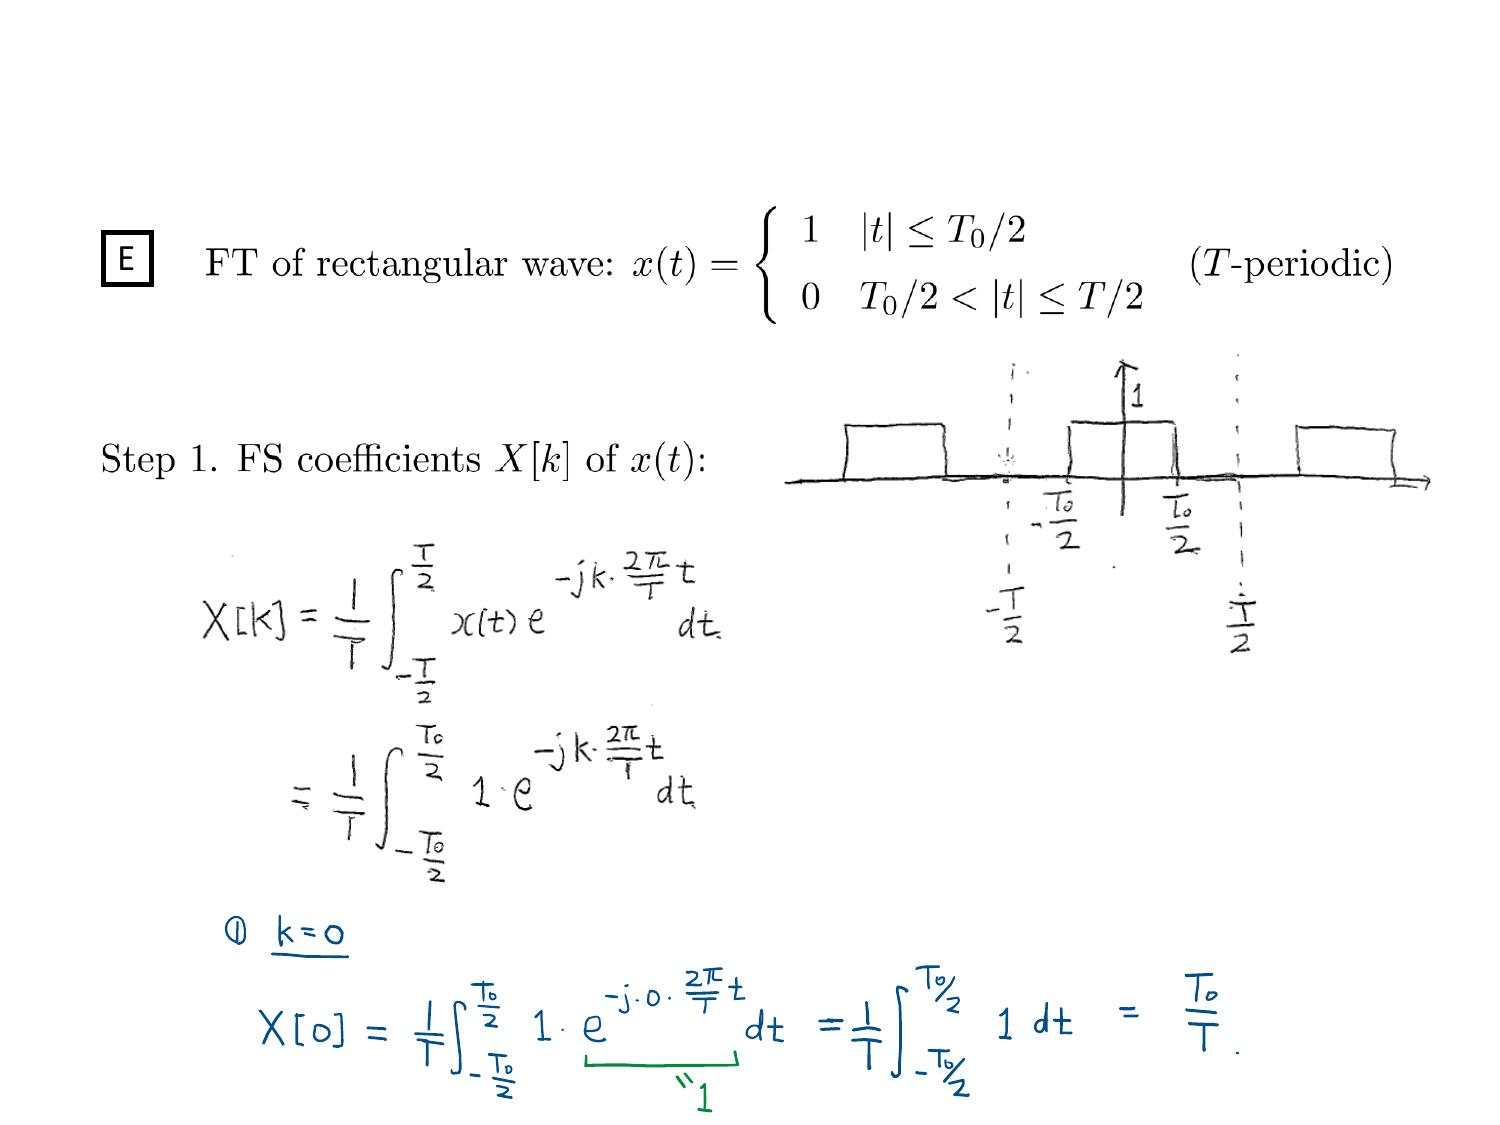 E FT of rectangular wave: x(t) = { 1 |t| ≤ T₀/2
0 T₀/2 < |t| ≤ T/2 (T-periodic)
1
Step 1. FS coefficients X[k] of x(t):
-T₀/2 T₀/2
-T/2 T/2
X[k] = 1/T ∫_{-T/2}^{T/2} x(t) e^{-jk·2π/T t} dt.
= 1/T ∫_{-T₀/2}^{T₀/2} 1·e^{-jk·2π/T t} dt.
① k=0
X[0] = 1/T ∫_{-T₀/2}^{T₀/2} 1·e^{-j·0·2π/T t} dt = 1/T ∫_{-T₀/2}^{T₀/2} 1 dt = T₀/T.
"1